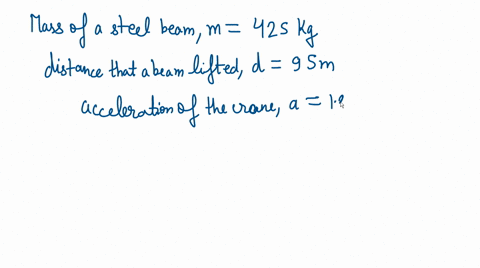 Mass of a steel beam, m = 425 Kg
distance that a beam lifted, d = 95m
acceleration of the crane, a = 1.